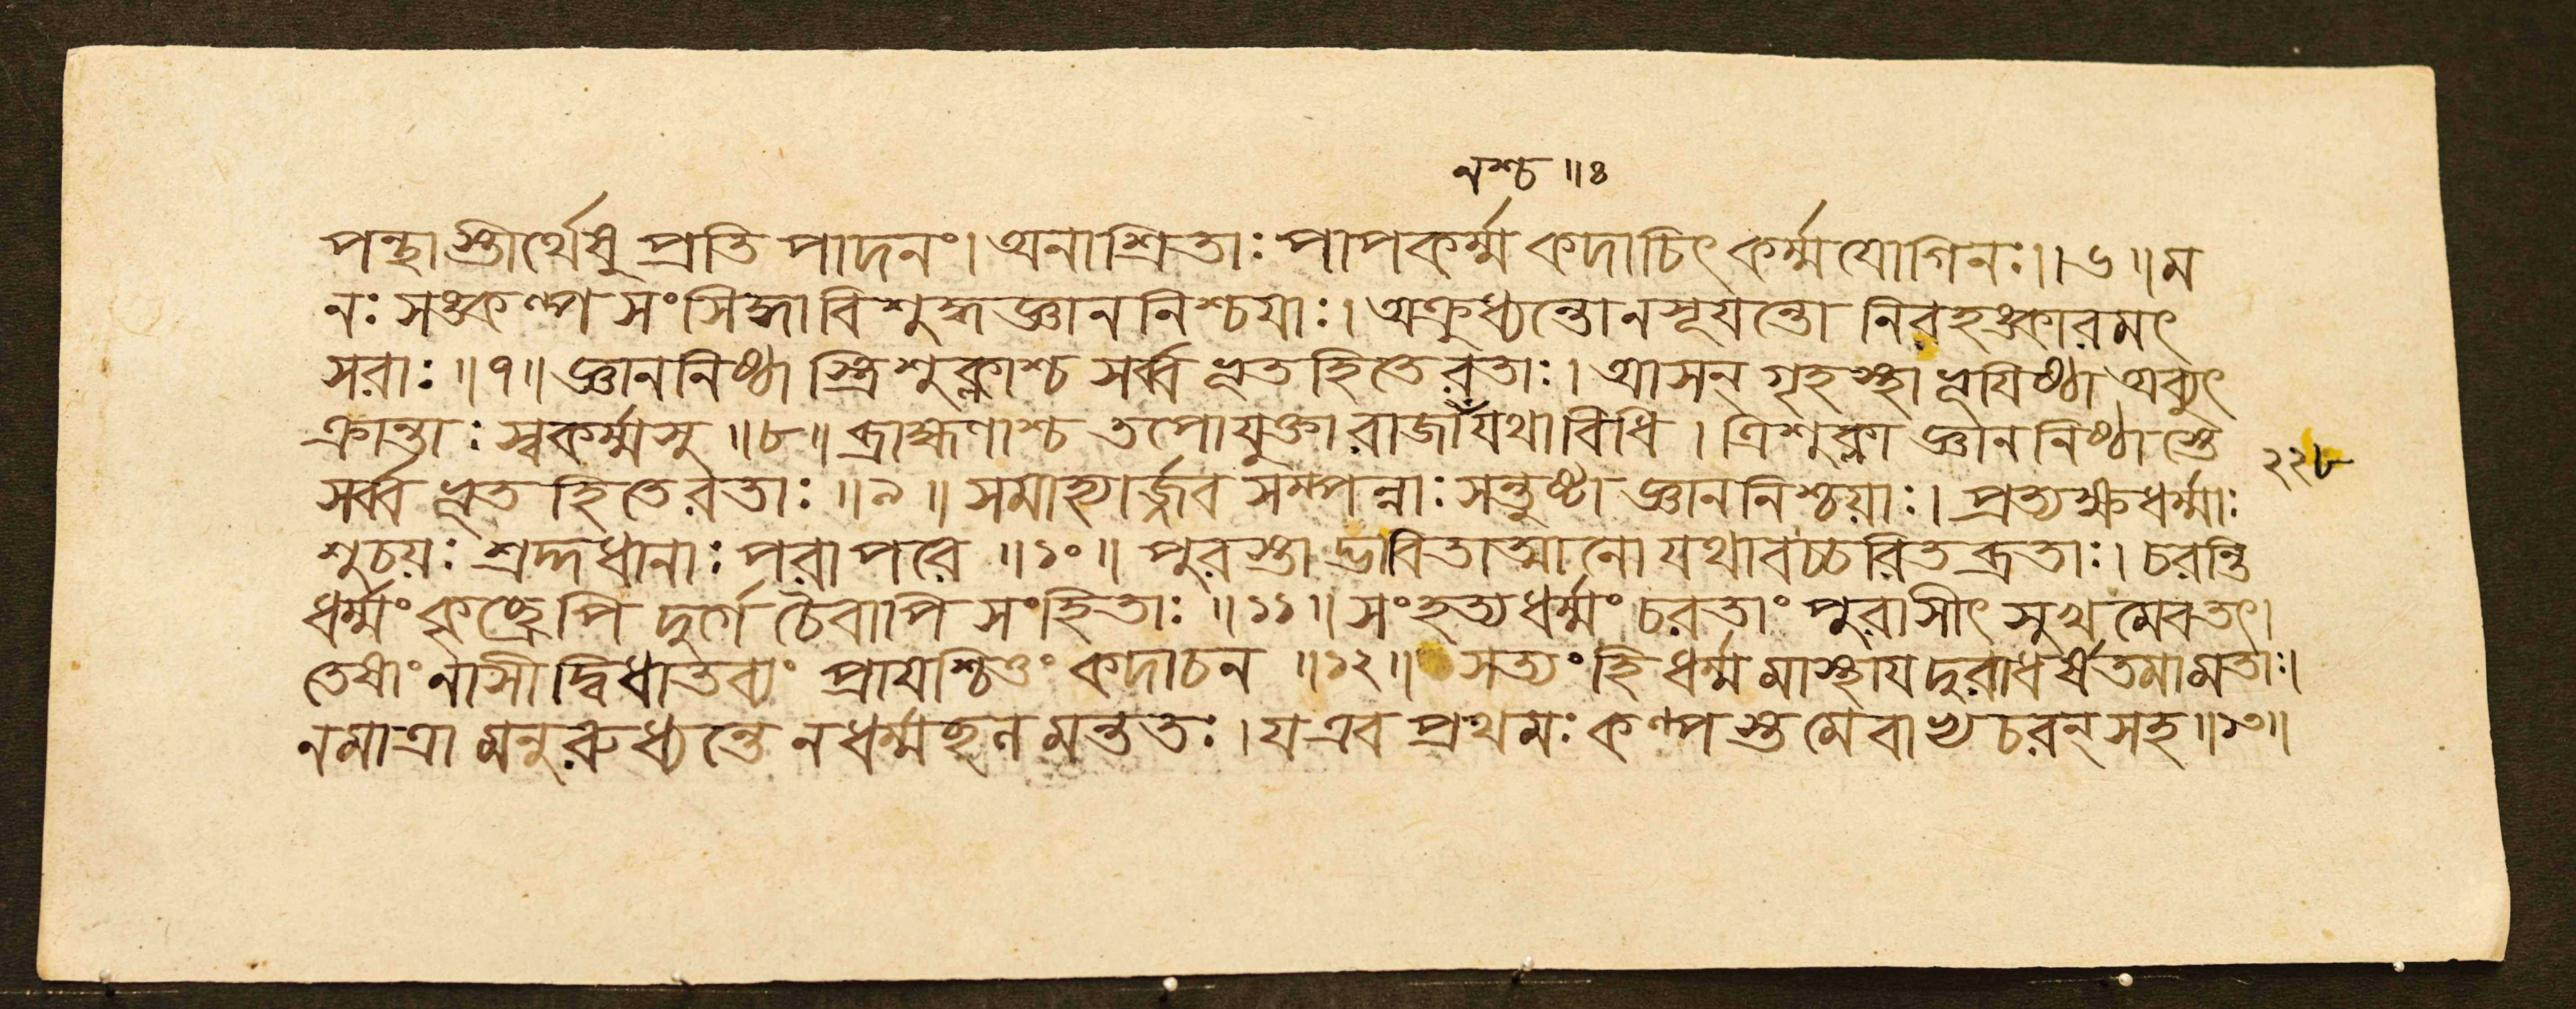 নশ্চ ॥৪
পন্থাস্তীর্থেষু প্রতিপাদনং। অনাশ্রিতাঃ পাপকর্ম্ম কদাচিৎ কর্ম্মযোগিনঃ॥৬॥ম
নঃ সঙ্কল্প সংসিদ্ধা বিশুদ্ধজ্ঞাননিশ্চযাঃ। অক্রুধ্যন্তোনসূযন্তো নিরহঙ্কারমৎ
সরাঃ॥৭॥ জ্ঞাননিষ্ঠা স্ত্রিশুক্লাশ্চ সর্ব্বভূতহিতেরতাঃ। আসন্ গৃহস্থা ভূযিষ্ঠা অব্যুৎ
ক্রান্তাঃ স্বকর্ম্মসু॥৮॥ ব্রাহ্মণাশ্চ তপোযুক্তা যথাবিধি। ত্রিশুক্লা জ্ঞাননিষ্ঠাস্তে ২২৮
সর্ব্বভূত হিতেরতাঃ॥৯॥ সমাহ্যার্জ্জব সম্পন্নাঃ সন্তুষ্টা জ্ঞাননিশ্চয়াঃ। প্রত্যক্ষধর্ম্মাঃ
শুচয়ঃ শ্রদ্দধানাঃ পরাপরে॥১০॥ পুরস্তাদ্ভাবিতাত্মানো যথাবচ্চরিতব্রতাঃ। চরন্তি
ধর্ম্মং কৃচ্ছ্রেপি দুর্গে চৈবাপি সংহিতাঃ॥১১॥ সংহত্যধর্ম্মং চরতাং পুরাসীৎ সুখমেবতৎ।
তেষাং নাসীদ্বিধাতব্যং প্রাযশ্চিত্তং কদাচন॥১২॥ সত্যং হি ধর্ম্মমাস্থায দুরাধর্ষতমামতাঃ।
নমাত্রামনুরুধ্যন্তে নধর্ম্মছলমন্ততঃ। যএব প্রথমঃ কল্পস্তমেবাভ্যচরন্ সহ॥১৩॥